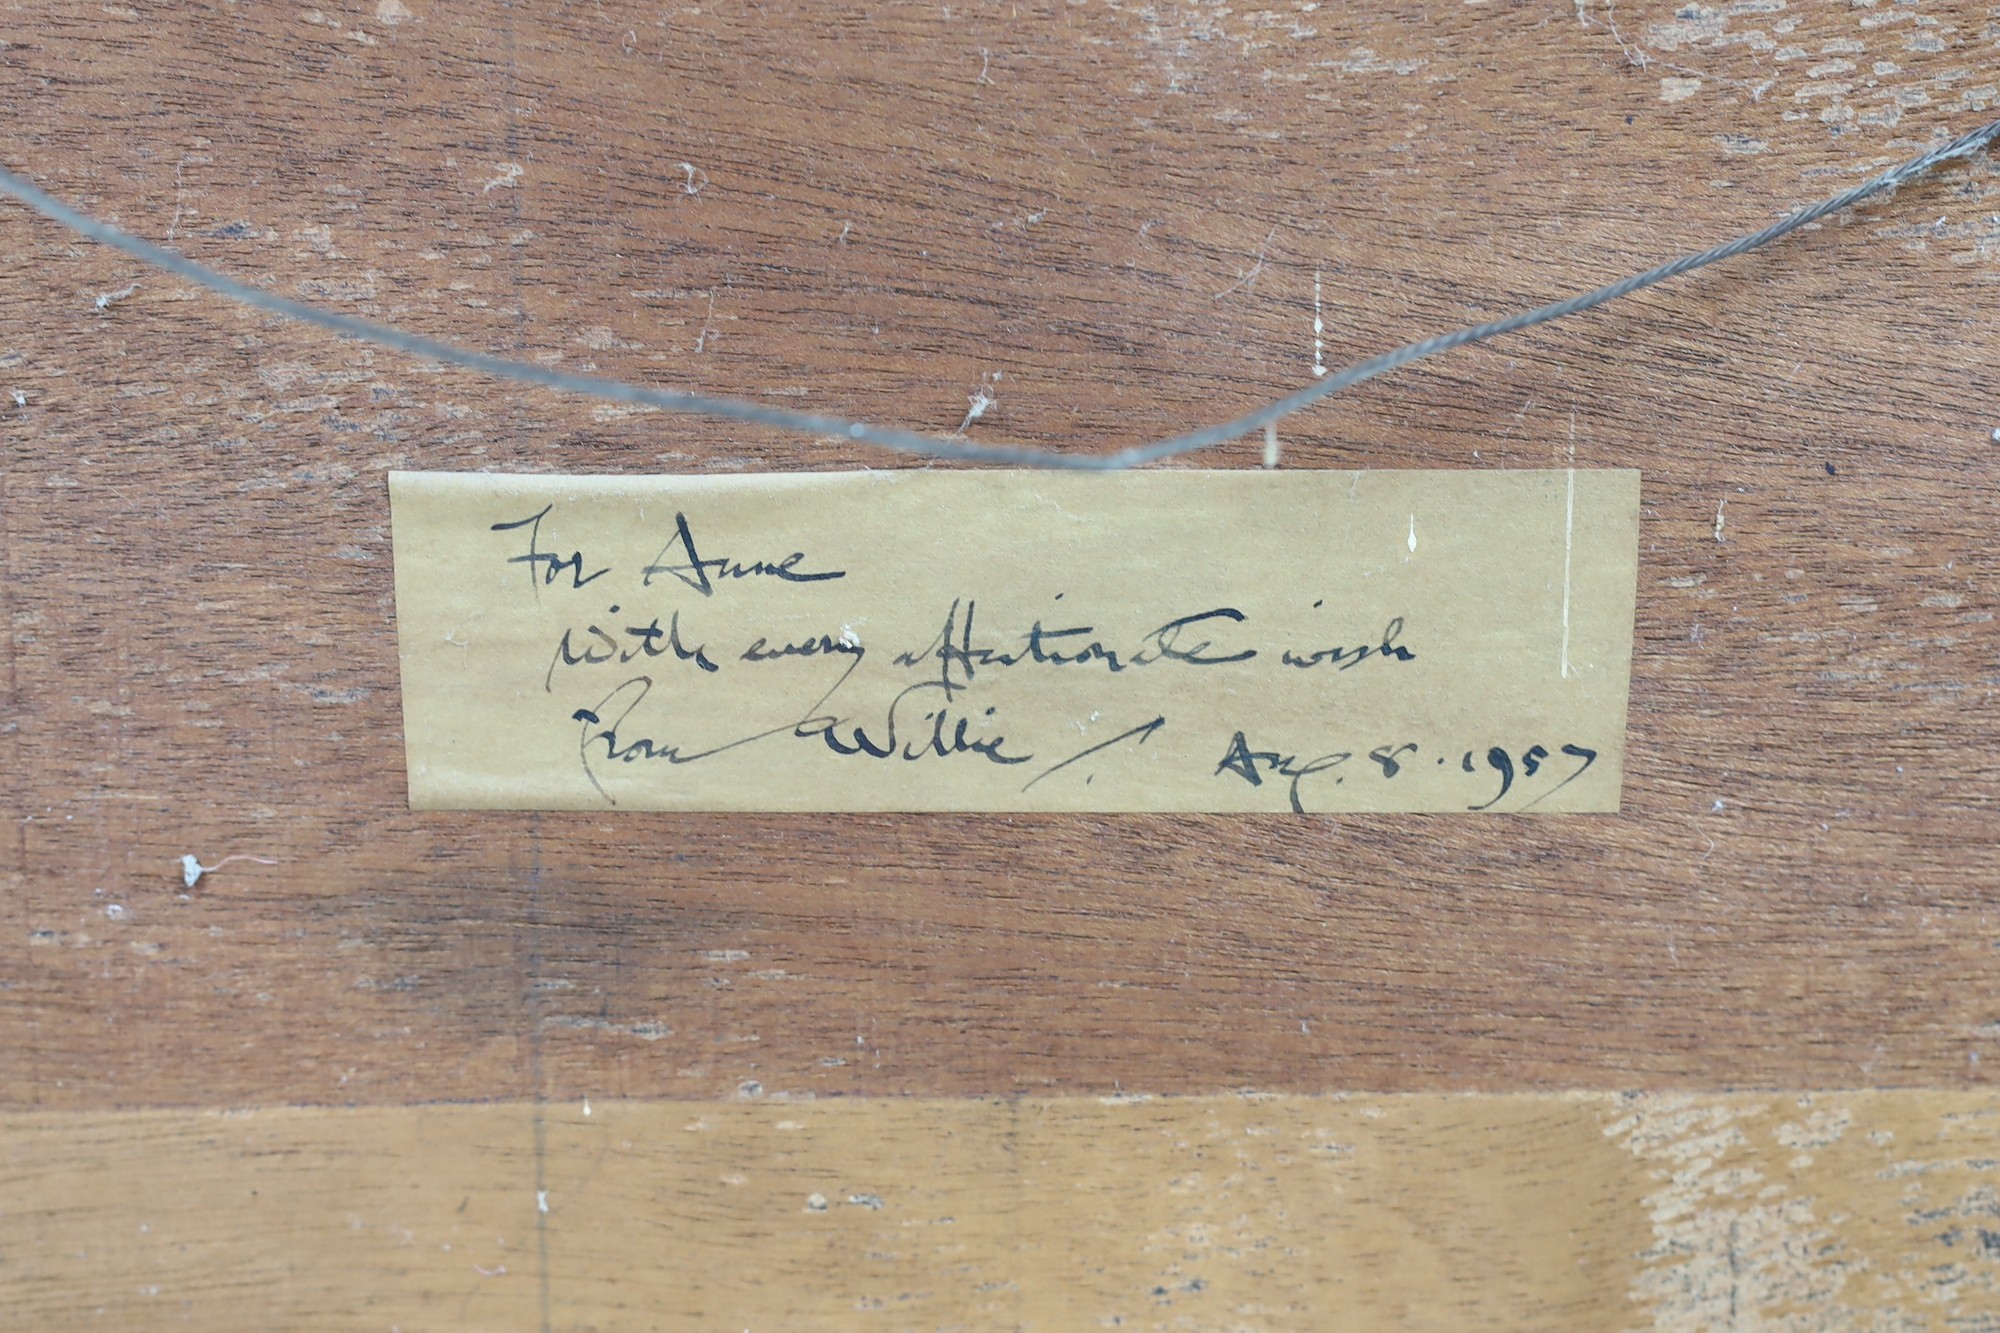 For Anne
With every affectionate wish
from Willie / . Aug. 8 . 1957